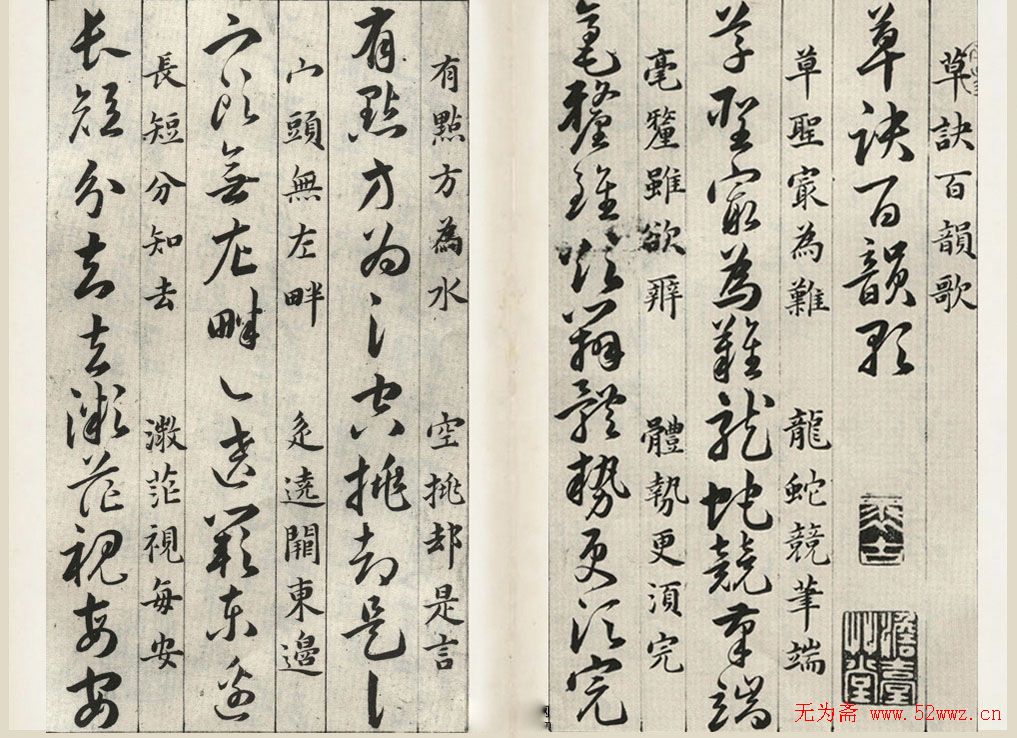 草訣百韻歌
草訣百韻歌
草聖㝡為難 龍蛇競筆端
草聖㝡為難龍蛇競筆端
毫釐雖欲辨 體勢更須完
毫釐雖欲辨體勢更須完
有點方為水 空挑却是言
有點方為水空挑却是言
宀頭無左畔 辵遶闕東邊
宀頭無左畔辵遶闕東邊
長短分知去 溦茫視每安
長短分知去溦茫視每安
无为斋 www.52wwz.cn